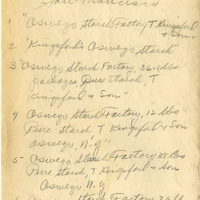 "Oswego Starch Factory, T Kingsford
& Son"
2 "Kingsford's Oswego Starch"
3 "Oswego Starch Factory, 36 lbs
packages Pure Starch T
Kingsford & Son"
4 Oswego Starch Factory, 12 lbs
Pure Starch, T Kingsford & Son
Oswego, N.Y"
5 Oswego Starch Factory 28 lbs
Pure Starch, T Kingsford & Son
Oswego N.Y
Oswego Starch Factory